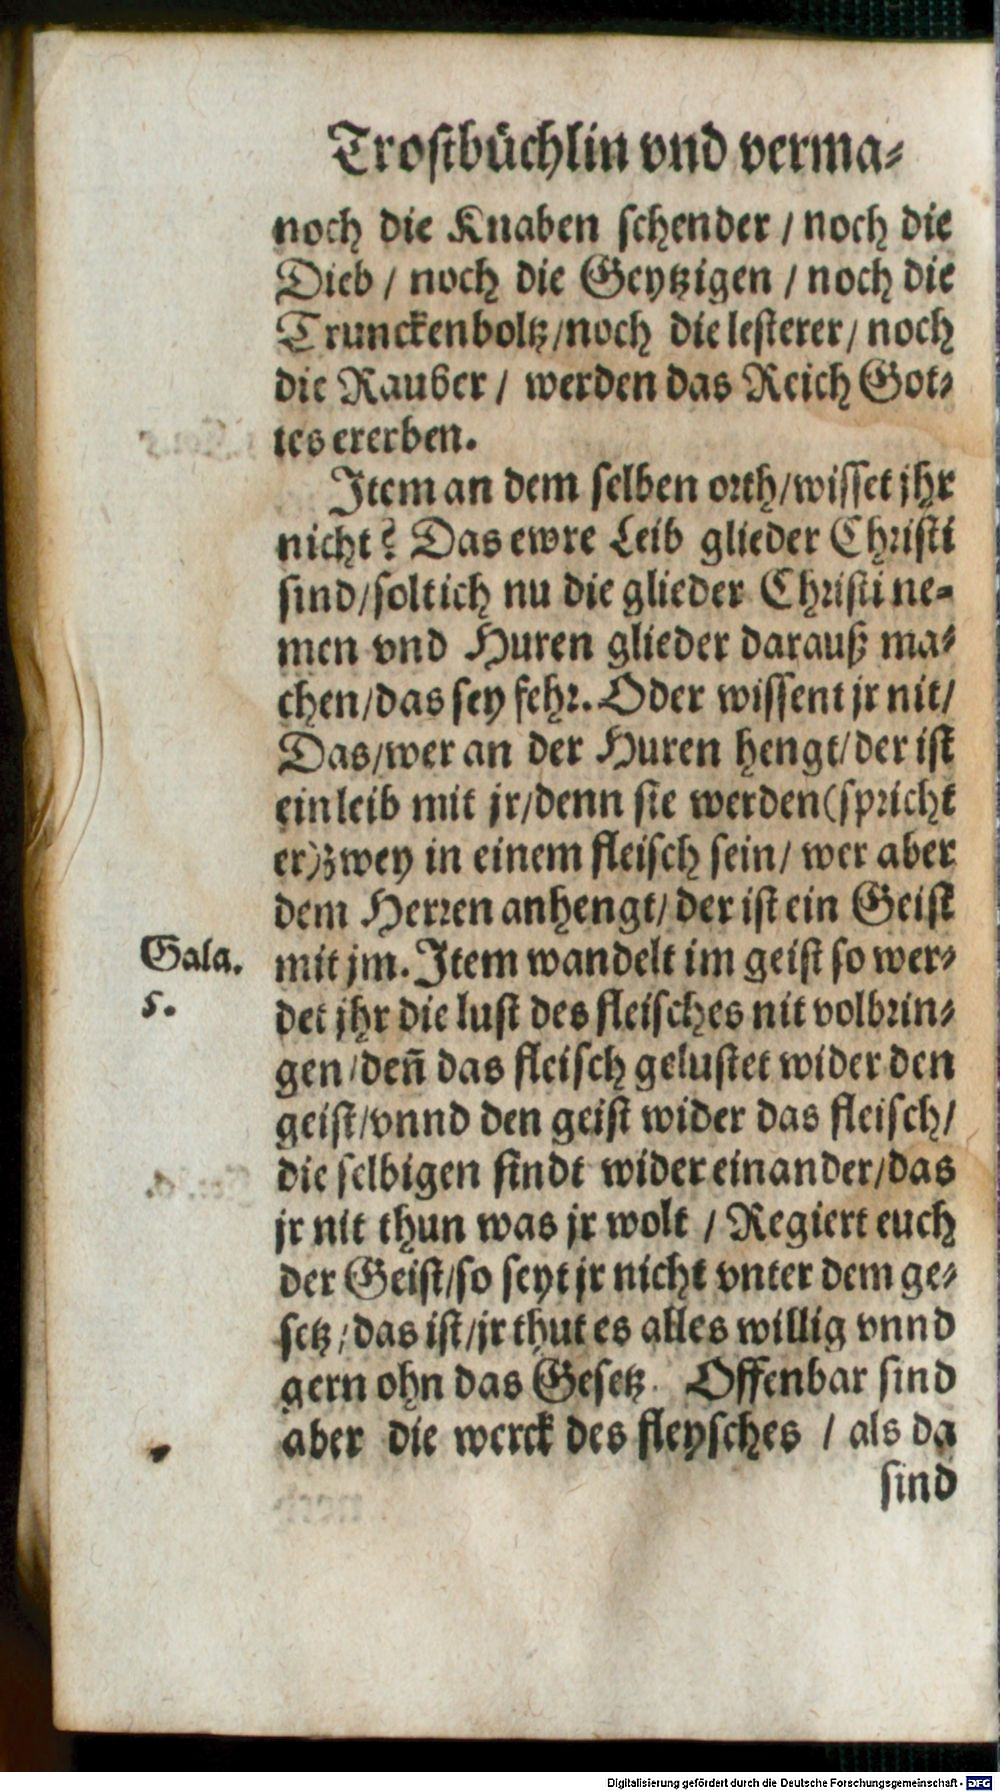 Trostbüchlin vnd verma⸗
noch die Knaben schender / noch die
Dieb / noch die Geytzigen / noch die
Trunckenboltz / noch die lesterer / noch
die Rauber / werden das Reich Got⸗
tes ererben.
Item an dem selben orth / wisset jhr
nicht? Das ewre Leib glieder Christi
sind / solt ich nu die glieder Christi ne⸗
men vnd Huren glieder darauß ma⸗
chen / das sey fehr. Oder wissent jr nit /
Das / wer an der Huren hengt / der ist
ein leib mit jr / denn sie werden (spricht
er) zwey in einem fleisch sein / wer aber
dem Herren anhengt / der ist ein Geist
Gala.
5.
mit jm. Item wandelt im geist so wer⸗
det jhr die lust des fleisches nit volbrin⸗
gen / deñ das fleisch gelustet wider den
geist / vnnd den geist wider das fleisch /
die selbigen sindt wider einander / das
jr nit thun was jr wolt / Regiert euch
der Geist / so seyt jr nicht vnter dem ge⸗
setz / das ist / jr thut es alles willig vnnd
gern ohn das Gesetz. Offenbar sind
aber die werck des fleysches / als da
sind
Digitalisierung gefördert durch die Deutsche Forschungsgemeinschaft - DFG